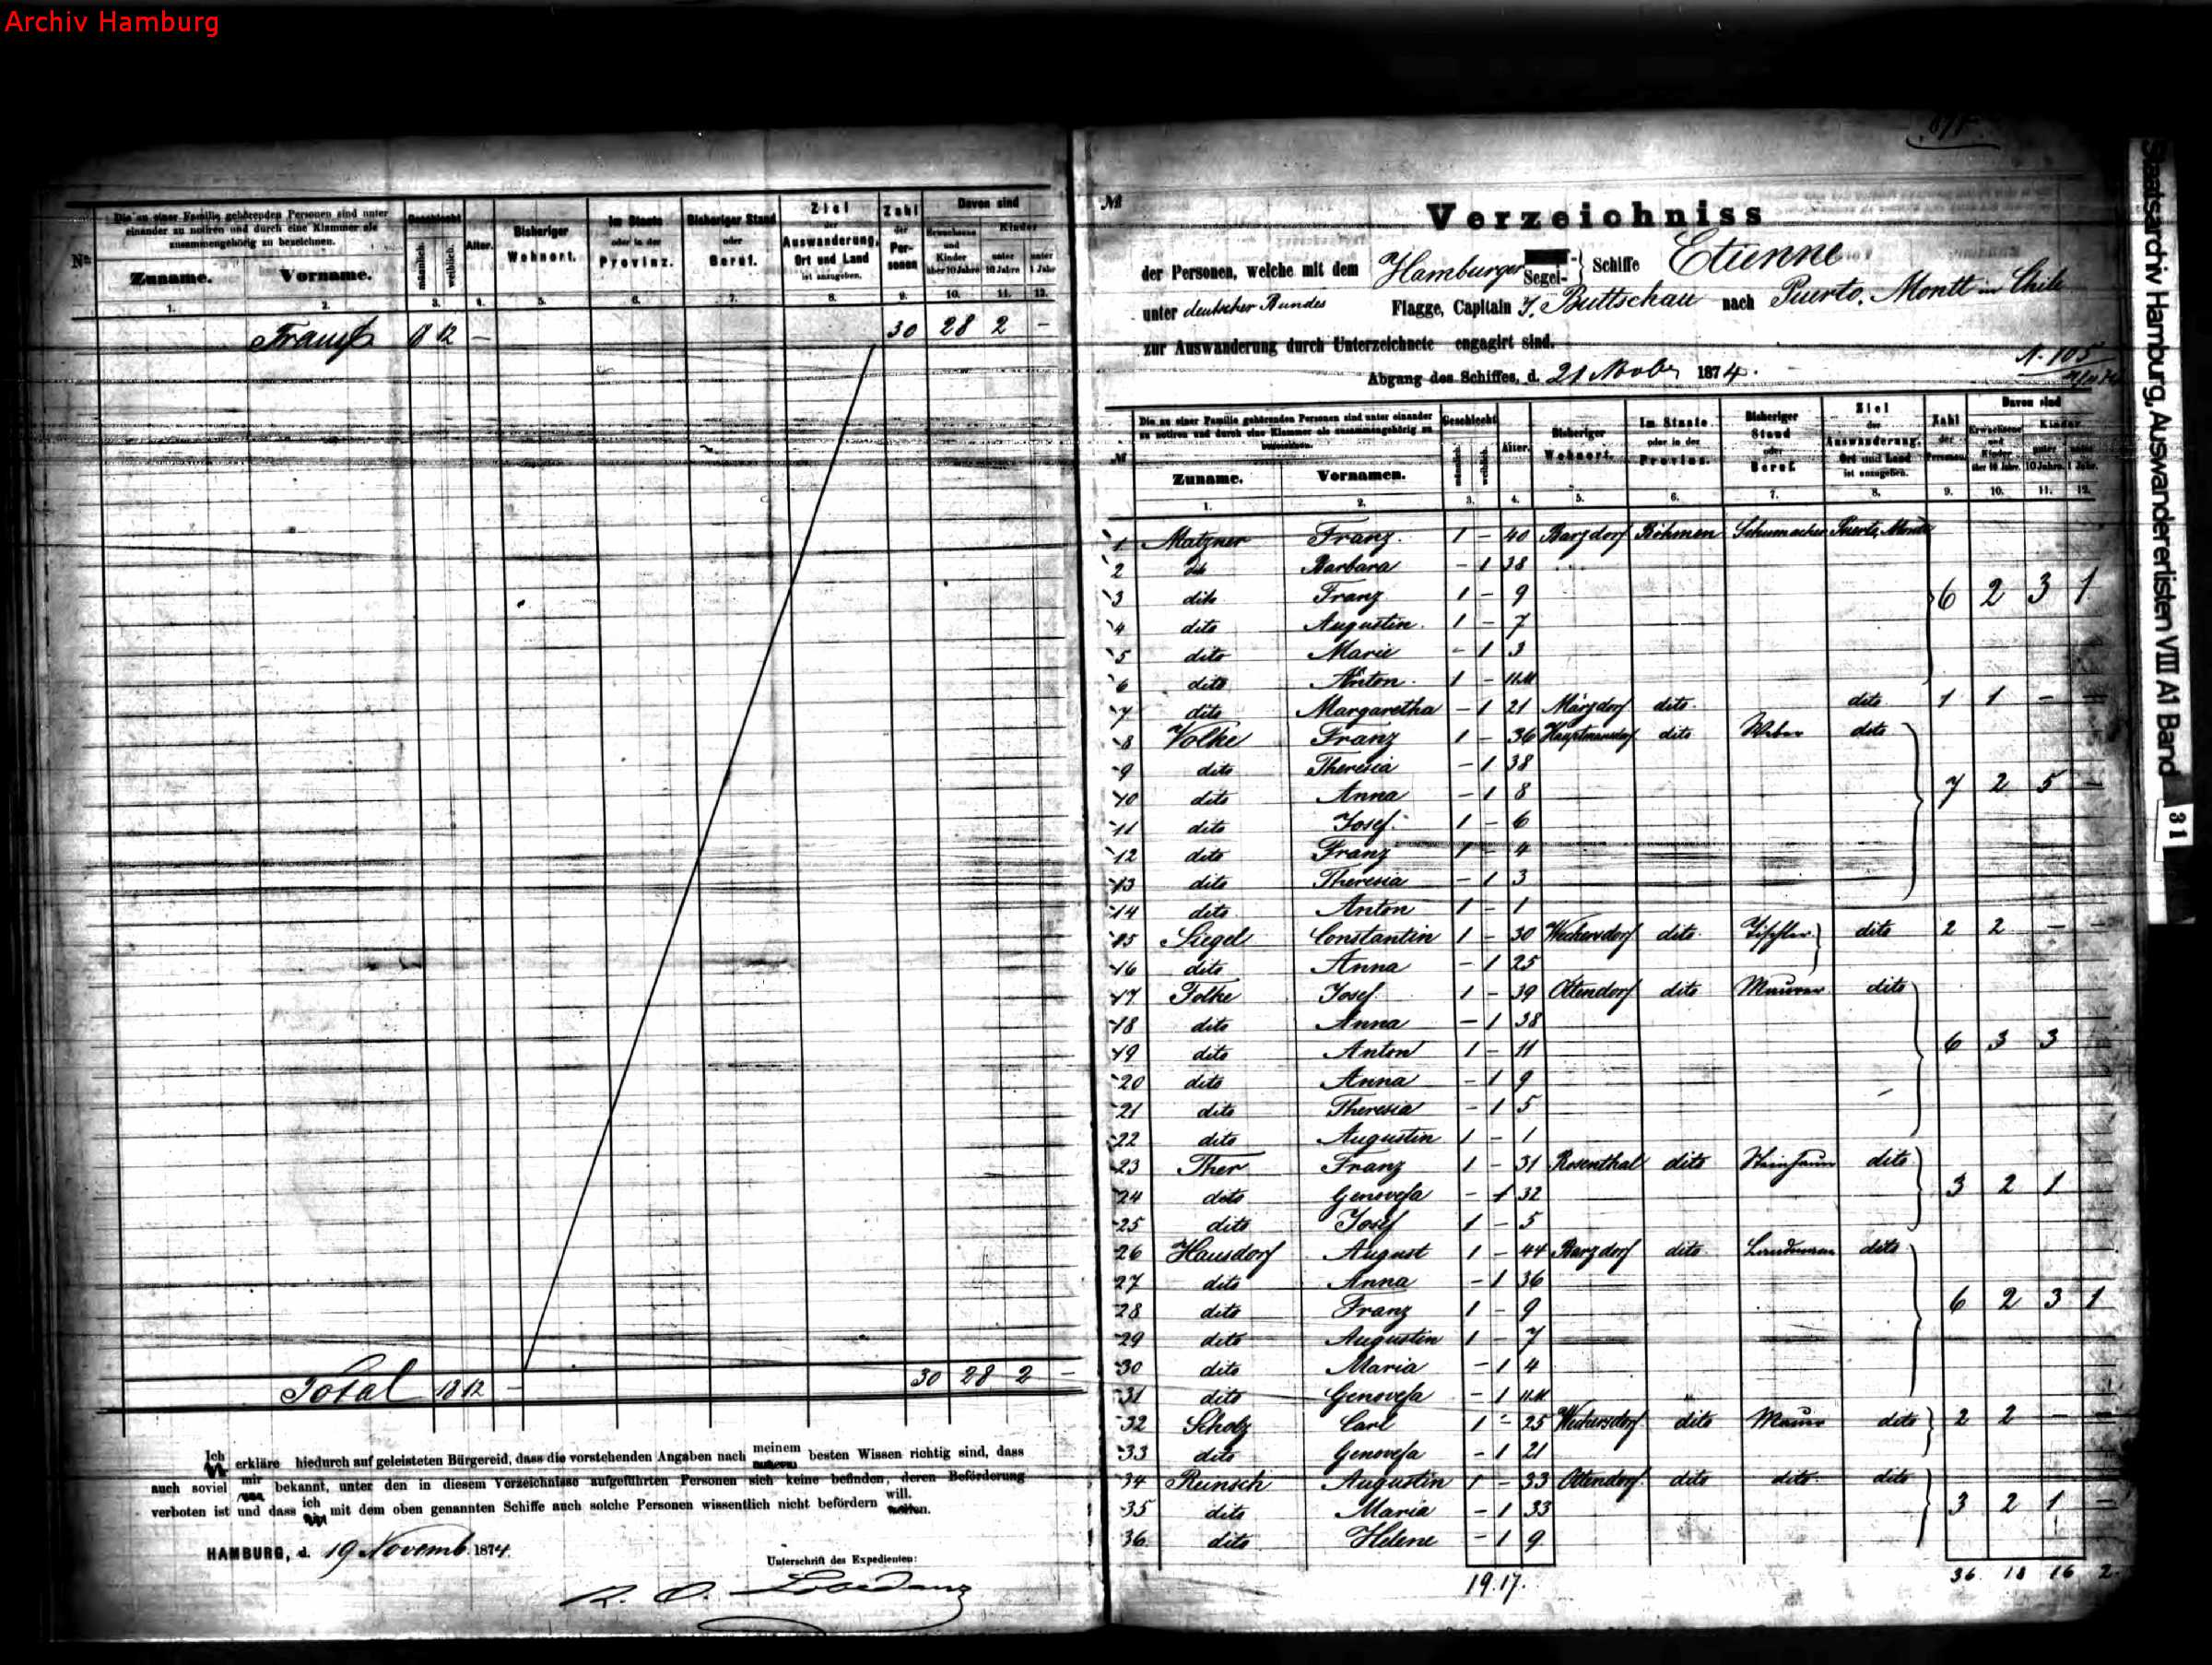 Archiv Hamburg
No.
Die zu einer Familie gehörenden Personen sind unter
einander zu notiren und durch eine Klammer als
zusammengehörig zu bezeichnen.
Zuname. Vorname.
Geschlecht
männlich. weiblich.
Alter.
Bisheriger
Wohnort.
Im Staate
oder in der
Provinz.
Bisheriger Stand
oder
Beruf.
Ziel
der
Auswanderung,
Ort und Land
ist anzugeben.
Zahl
der
Per-
sonen
Davon sind
Erwachsene
und
Kinder
über 10 Jahre
Kinder
unter
10 Jahre
unter
1 Jahr
1. 2. 3. 4. 5. 6. 7. 8. 9. 10. 11. 12.
Transp 18 12 — 30 28 2 —
Total 18 12 — 30 28 2 —
Ich erkläre hiedurch auf geleisteten Bürgereid, dass die vorstehenden Angaben nach meinem besten Wissen richtig sind, dass
auch soviel mir bekannt, unter den in diesem Verzeichnisse aufgeführten Personen sich keine befinden, deren Beförderung
verboten ist und dass ich mit dem oben genannten Schiffe auch solche Personen wissentlich nicht befördern will.
HAMBURG, d. 19 Novemb. 1874.
Unterschrift des Expedienten:
R. O. Lobedanz
No
Verzeichniss
der Personen, welche mit dem Hamburger Segel- Schiffe Etienne
unter deutscher Bundes Flagge, Capitain J. Buttschau nach Puerto Montt in Chile
zur Auswanderung durch Unterzeichnete engagirt sind.
N. 105
Abgang des Schiffes, d. 21 Novbr 1874.
Die zu einer Familie gehörenden Personen sind unter einander
zu notiren und durch eine Klammer als zusammengehörig zu
bezeichnen.
Zuname. Vornamen.
Geschlecht
männlich. weiblich.
Alter.
Bisheriger
Wohnort.
Im Staate
oder in der
Provinz.
Bisheriger
Stand
oder
Beruf.
Ziel
der
Auswanderung,
Ort und Land
ist anzugeben.
Zahl
der
Personen
Davon sind
Erwachsene
und
Kinder
über 10 Jahr.
Kinder
unter
10 Jahre.
unter
1 Jahr.
1. 2. 3. 4. 5. 6. 7. 8. 9. 10. 11. 12.
1 Matzner Franz. 1 — 40 Barzdorf Böhmen Schumacher Puerto Montt
2 do Barbara — 1 38
3 dito Franz 1 — 9 6 2 3 1
4 dito Augustin. 1 — 7
5 dito Marie — 1 3
6 dito Anton. 1 — 11M
7 dito Margaretha — 1 21 Märzdorf dito. dito 1 1 — —
8 Volke Franz 1 — 36 Hauptmansdorf dito Weber dito
9 dito Theresia — 1 38
10 dito Anna — 1 8 7 2 5 —
11 dito Josef. 1 — 6
12 dito Franz 1 — 4
13 dito Theresia — 1 3
14 dito Anton 1 — 1
15 Siegel Constantin 1 — 30 Weckersdorf dito. Tischler dito 2 2 — —
16 dito Anna — 1 25
17 Tolke Josef. 1 — 39 Ottendorf dito Maurer dito
18 dito Anna — 1 38
19 dito Anton 1 — 11 6 3 3
20 dito Anna — 1 9
21 dito Theresia — 1 5
22 dito Augustin 1 — 1
23 Ther Franz 1 — 31 Rosenthal dito dito
24 dito Genovefa — 1 32 3 2 1
25 dito Josef 1 — 5
26 Hausdorf August 1 — 44 Barzdorf dito. Landmann dito
27 dito Anna — 1 36
28 dito Franz 1 — 9 6 2 3 1
29 dito Augustin 1 — 7
30 dito Maria — 1 4
31 dito Genovefa — 1 11M
32 Scholz Carl 1 — 25 Weckersdorf dito Maurer dito 2 2 — —
33 dito Genovefa — 1 21
34 Reinsch Augustin 1 — 33 Ottendorf. dito dito. dito
35 dito Maria — 1 33 3 2 1 —
36 dito Helene — 1 9
19. 17. 36. 18 16 2.
Staatsarchiv Hamburg, Auswandererlisten VIII A1 Band 31